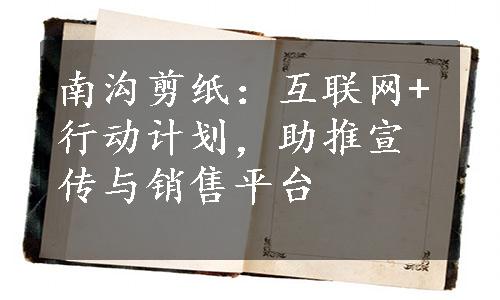 南沟剪纸：互联网+
行动计划，助推宣
传与销售平台